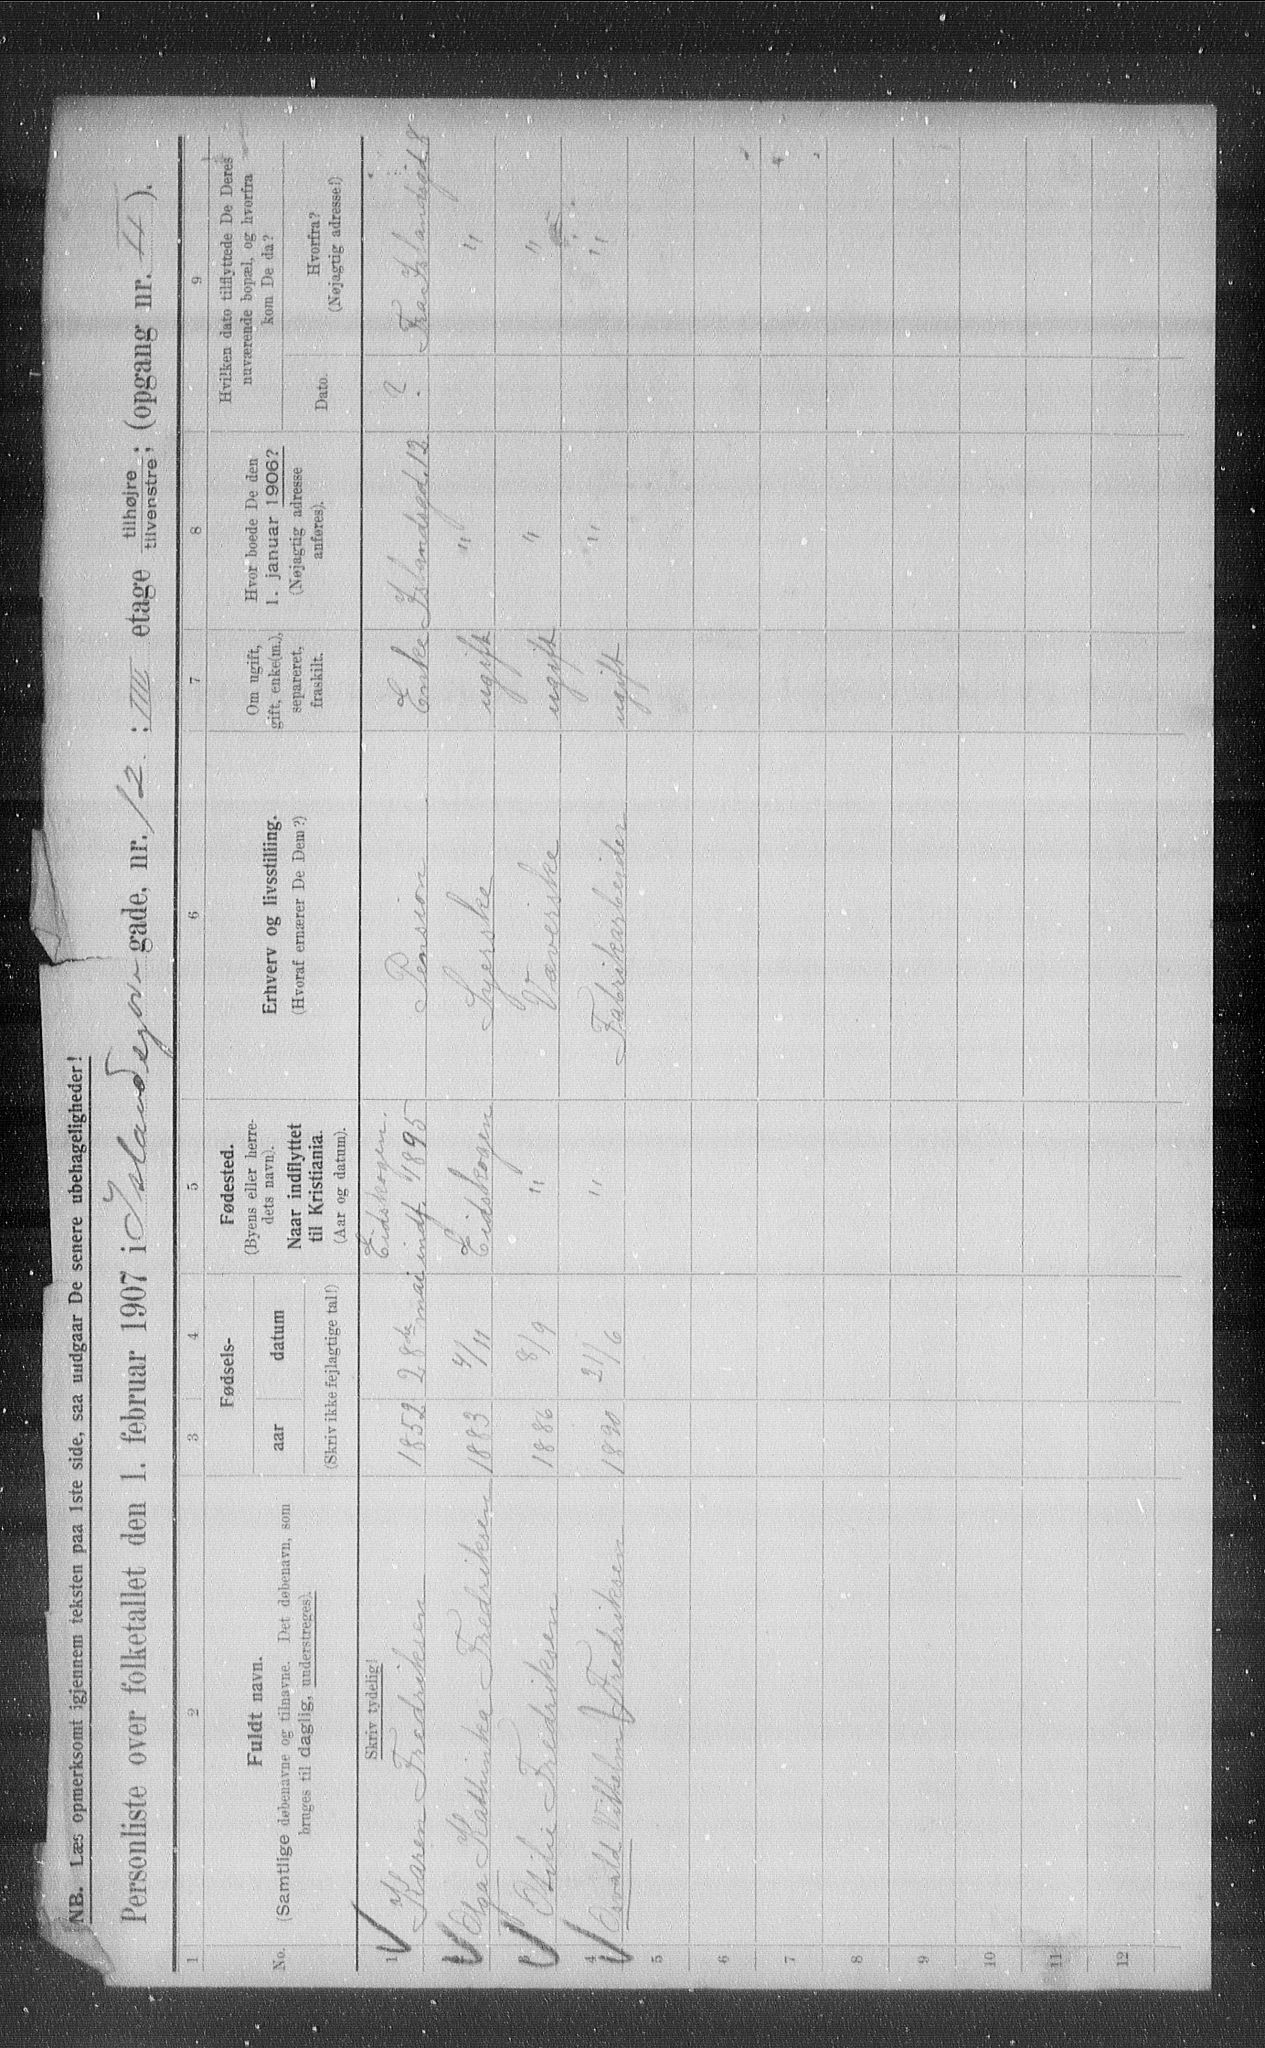 NB. Læs opmerksomt igjennem teksten paa 1ste side, saa undgaar De senere ubehageligheder!
Personliste over folketallet den 1. februar 1907 i Islandsgade, nr. 12: IIII etage tilhøjre / tilvenstre; (opgang nr. II).
1 2 3 4 5 6 7 8 9
No.
Fuldt navn.
(Samtlige døbenavne og tilnavne. Det døbenavn, som
bruges til daglig, understreges).
Fødsels-
aar datum
(Skriv ikke fejlagtige tal!)
Fødested.
(Byens eller herre-
dets navn).
Naar indflyttet
til Kristiania.
(Aar og datum).
Erhverv og livsstilling.
(Hvoraf ernærer De Dem?)
Om ugift,
gift, enke(m.),
separeret,
fraskilt.
Hvor boede De den
1. januar 1906?
(Nøjagtig adresse
anføres).
Hvilken dato tilflyttede De Deres
nuværende bopæl, og hvorfra
kom De da?
Dato.
Hvorfra?
(Nøjagtig adresse!)
Skriv tydelig!
1 Karen Fredriksen 1852 28de mai Eidskogen. indf. 1895 Pension Enke Islandsgd. 12 ? Fra Islandsgd. 8
2 Olga Kathinka Fredriksen 1883 4/11 Eidskogen Syerske ugift " "
3 Otilie Fredriksen 1886 8/9 " Væverske ugift " "
4 Osvald Vilhelm Fredriksen 1890 21/6 " Fabrikarbeider ugift " "
5
6
7
8
9
10
11
12